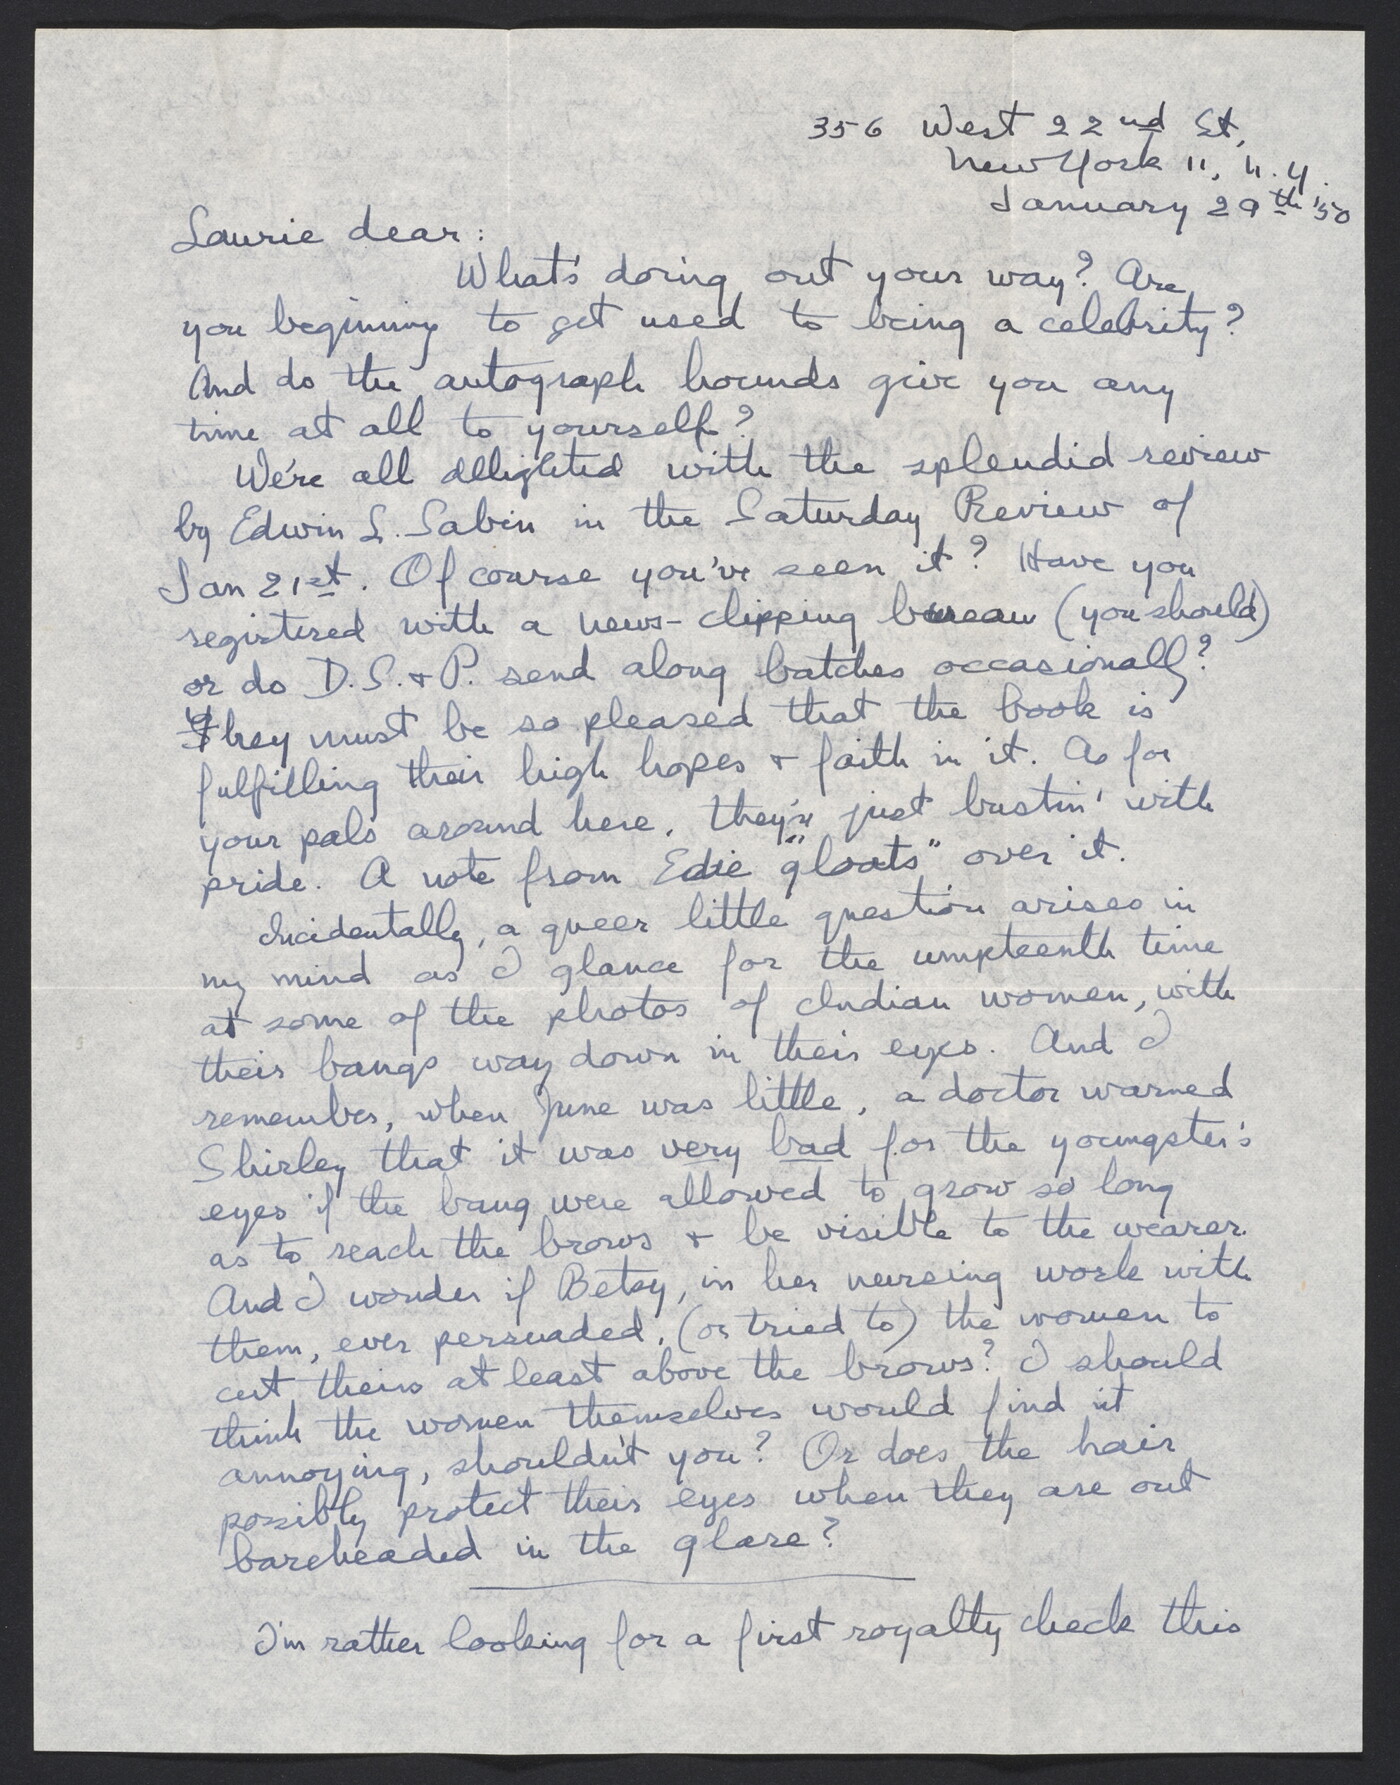 356 West 22nd St,
New York 11, N.Y.
January 29th '50
Laurie dear:
What's doing out your way? Are
you beginning to get used to being a celebrity?
And do the autograph hounds give you any
time at all to yourself?
We're all delighted with the splendid review
by Edwin L. Sabin in the Saturday Review of
Jan 21st. Of course you've seen it? Have you
registered with a news-clipping bureau (you should)
or do D.S. & P. send along batches occasionally?
They must be so pleased that the book is
fulfilling their high hopes & faith in it. As for
your pals around here, they're just bustin' with
pride. A note from Edie "gloats" over it.
Incidentally, a queer little question arises in
my mind as I glance for the umpteenth time
at some of the photos of Indian women, with
their bangs way down in their eyes. And I
remember, when June was little, a doctor warned
Shirley that it was very bad for the youngster's
eyes if the bang were allowed to grow so long
as to reach the brows & be visible to the wearer.
And I wonder if Betsy, in her nursing work with
them, ever persuaded, (or tried to) the women to
cut theirs at least above the brows? I should
think the women themselves would find it
annoying, shouldn't you? Or does the hair
possibly protect their eyes when they are out
bareheaded in the glare?
I'm rather looking for a first royalty check this